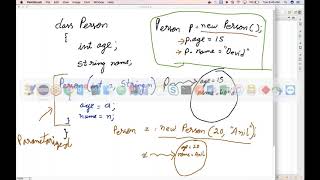 class Person
{
int age;
String name;
Person(int String n)
{
age = a;
name = n;
}
}
Parametorized
Person p = new Person();
p.age = 15
p.name = "Devid"
p
age = 15
Person z = new Person(20, "Anil");
z
age = 20
name = Anil